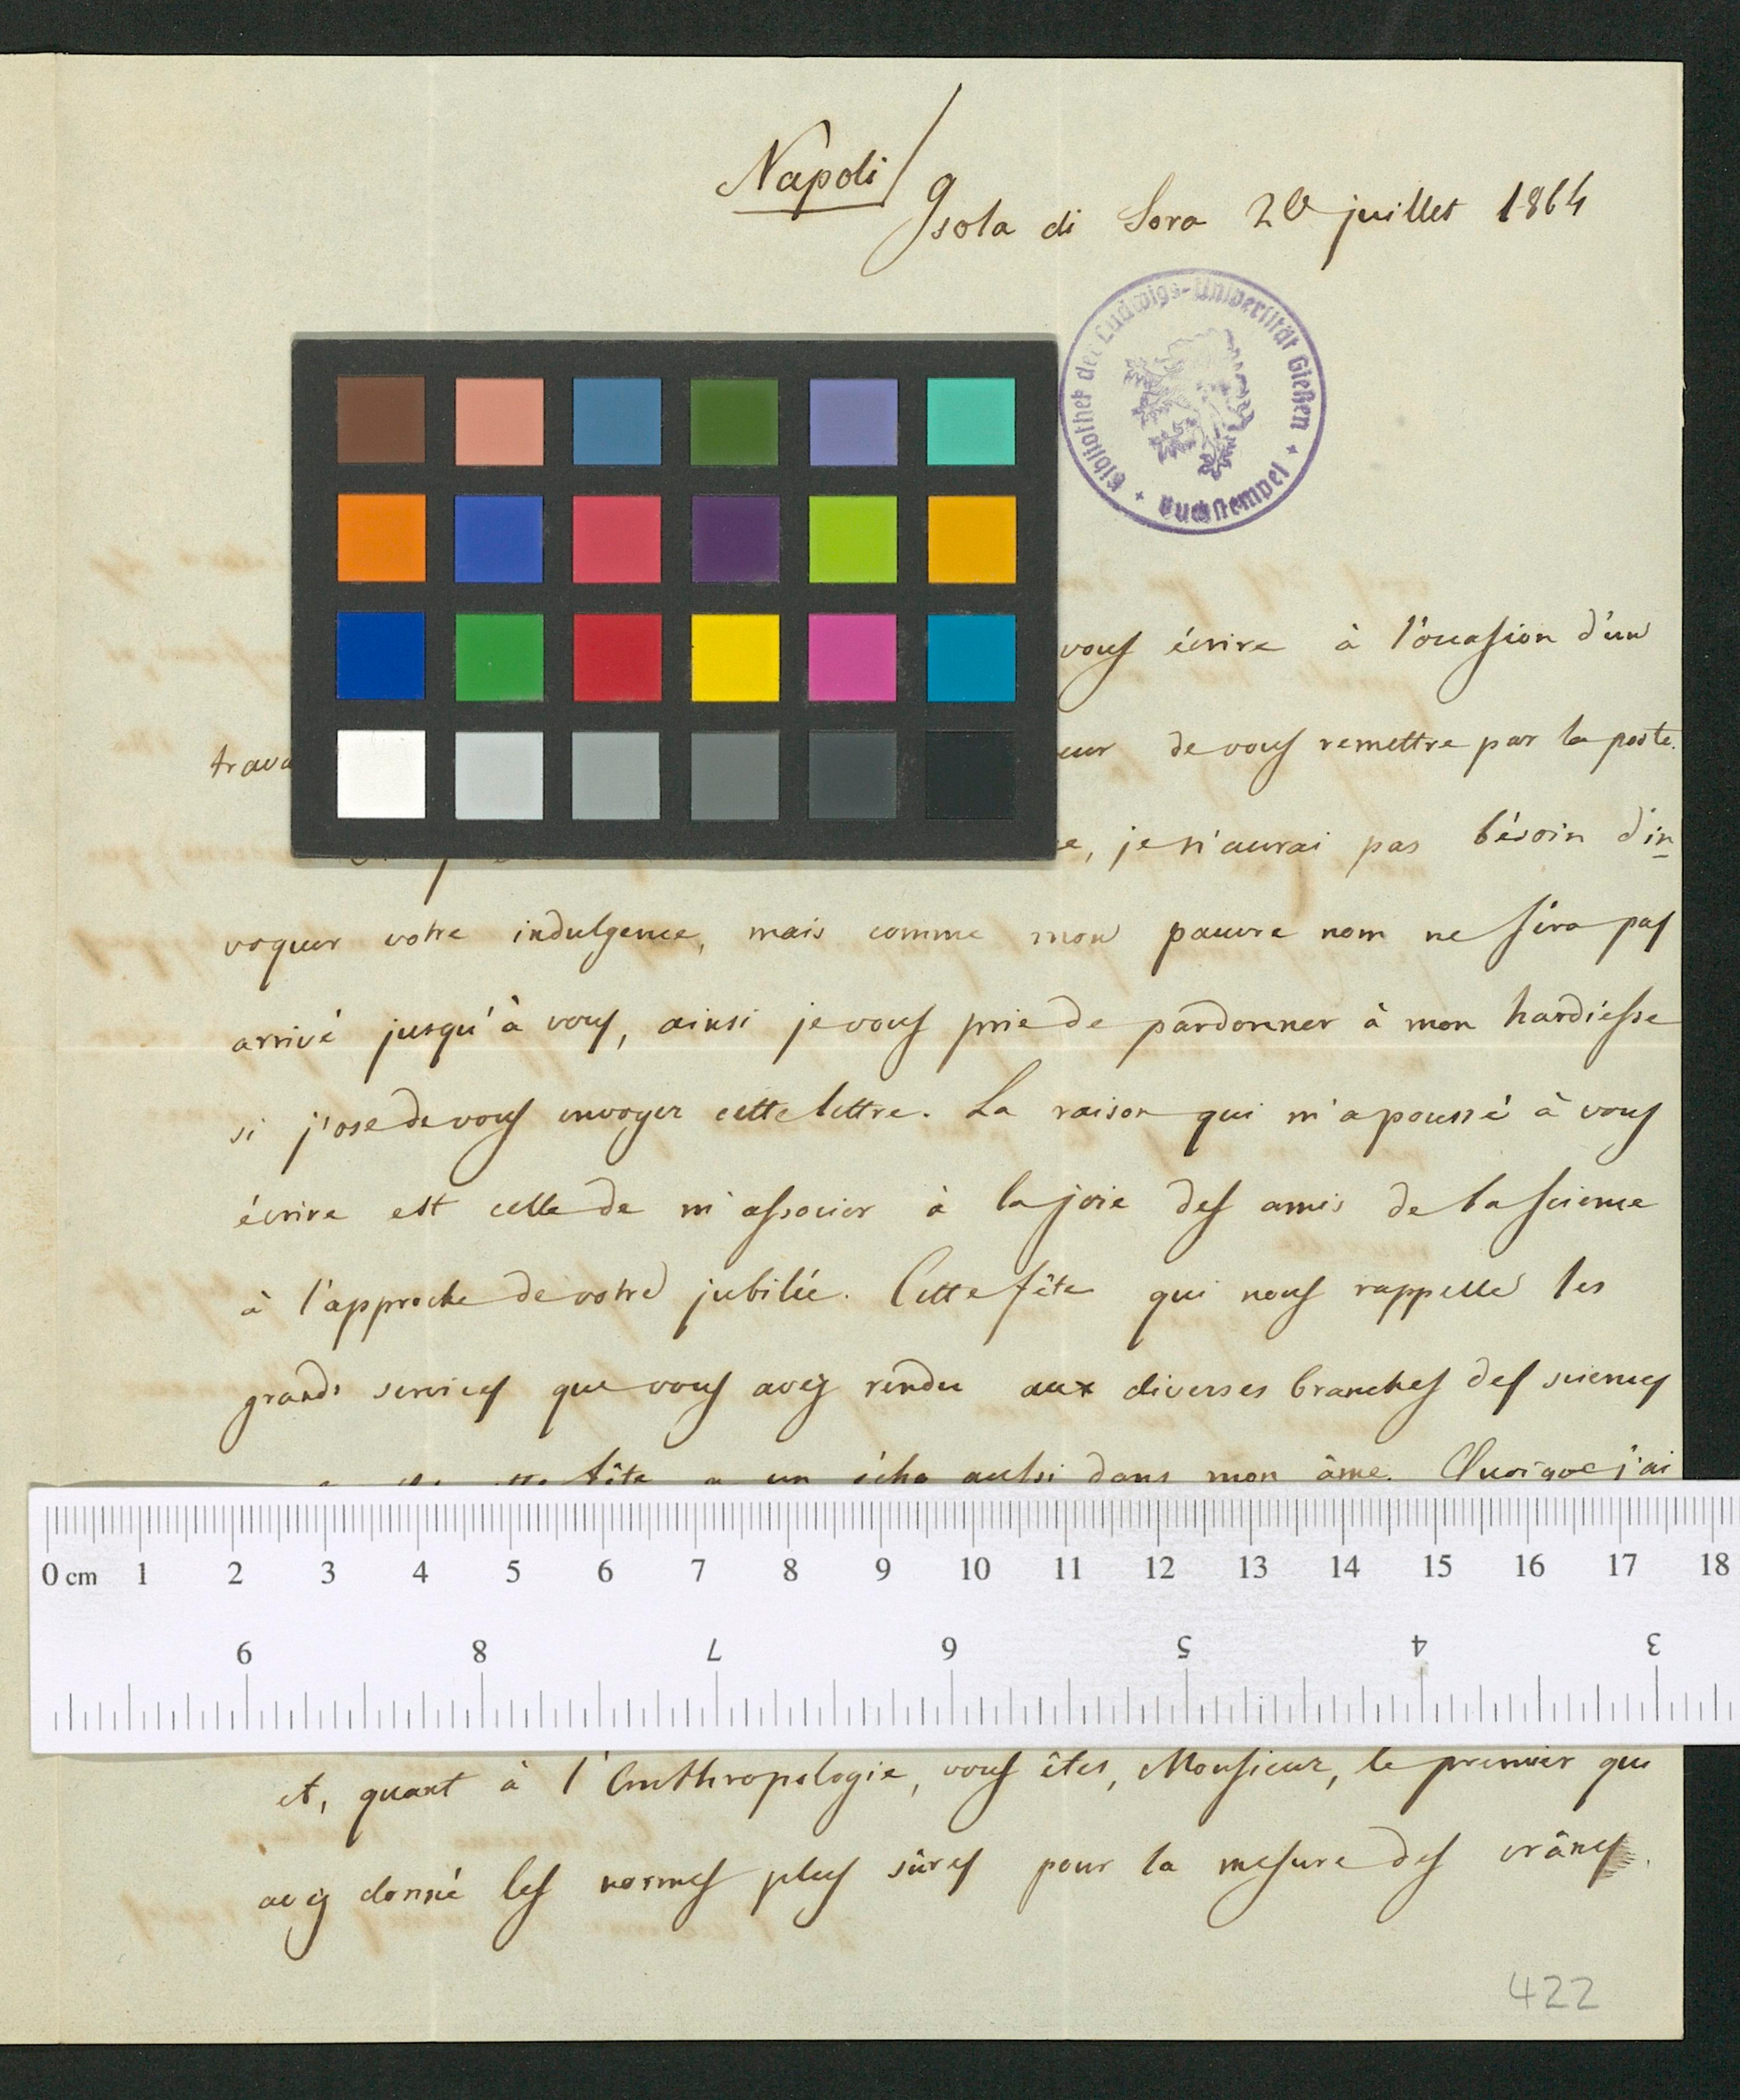 Napoli/
Isola di Sora 20 juillet 1864
Bibliothek der Ludwigs-Universität Gießen
Buchstempel
vous écrire à l'occasion d'un
trava eur de vous remettre par la poste.
e, je n'aurai pas bésoin d'in
voquer votre indulgence, mais comme mon pauvre nom ne séra pas
arrivé jusqu'à vous, ainsi je vous prie de pardonner à mon hardiesse
si j'ose de vous envoyer cette lettre. La raison qui m'a poussé à vous
écrire est celle de m'associer à la joie des amis de la science
à l'approche de votre jubilée. Cette fête qui nous rappelle les
grands services que vous avez rendu aux diverses branches des sciences
fête a un écho aussi dans mon âme. Quoique j'ai
0 cm 1 2 3 4 5 6 7 8 9 10 11 12 13 14 15 16 17 18
9 8 7 6 5 4 3
et, quant à l'Anthropologie, vous êtes, Monsieur, le premier qui
avez donné les normes plus sûres pour la mesure des crânes.
422